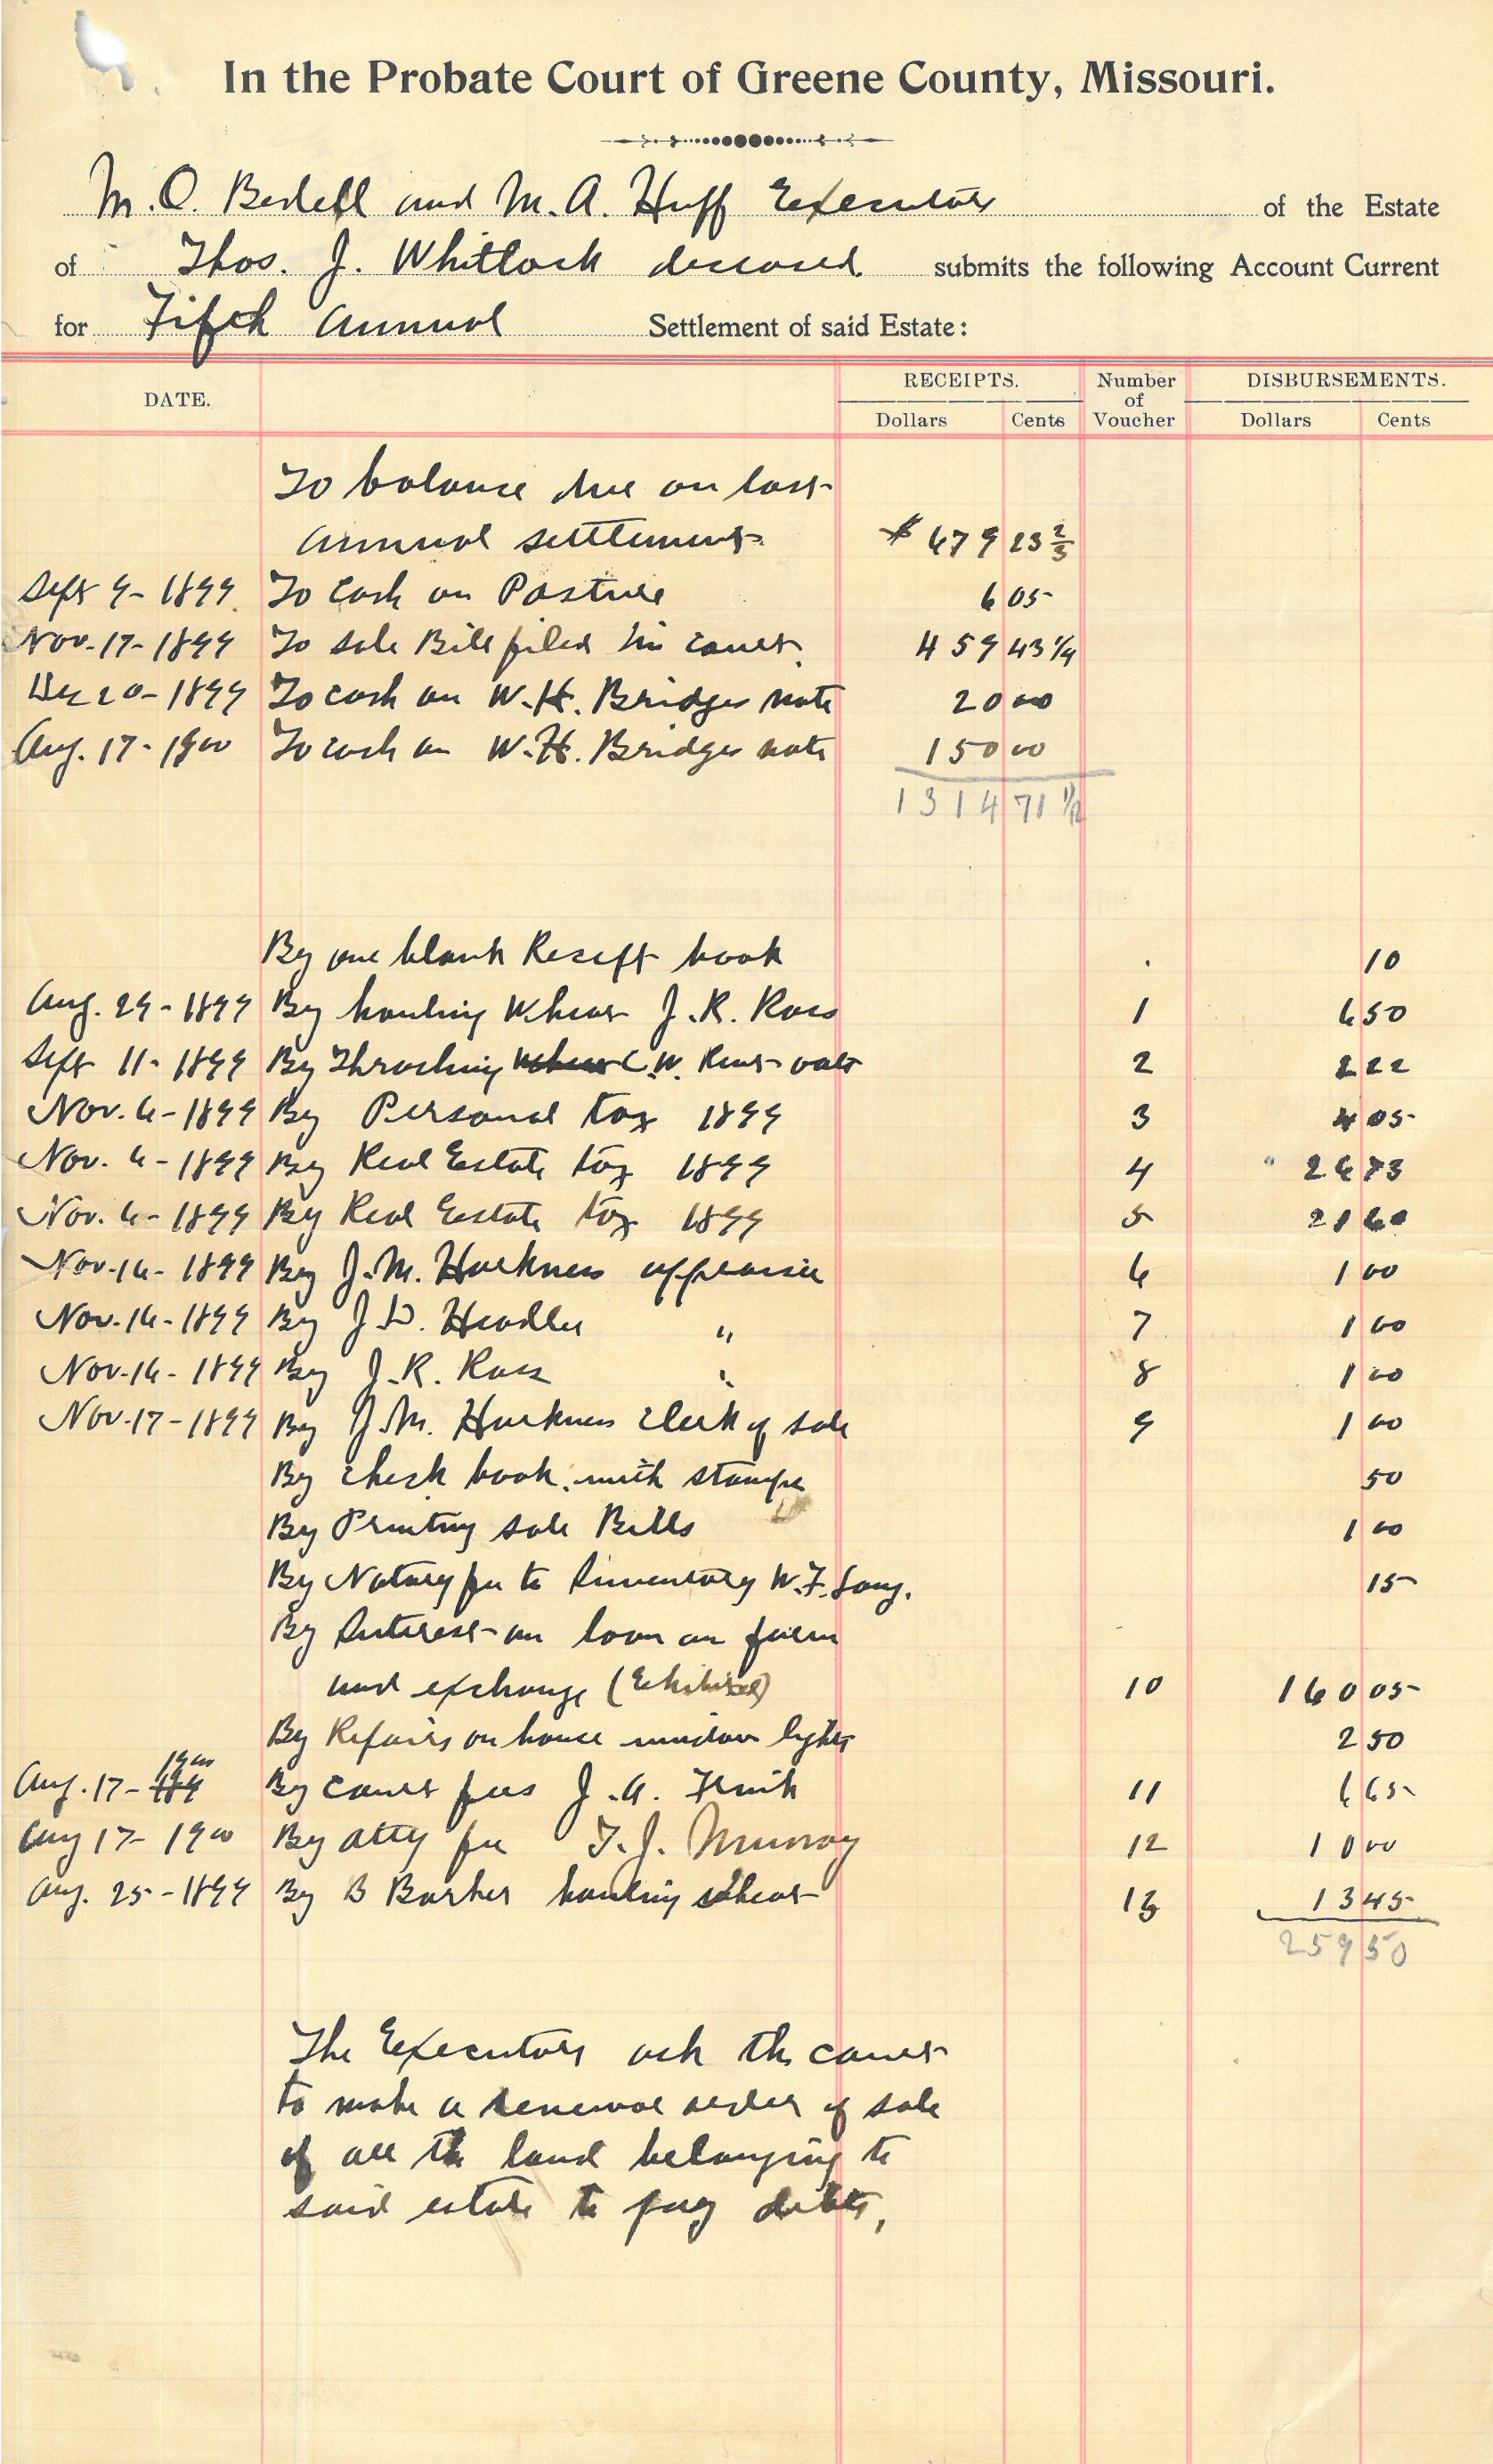 In the Probate Court of Greene County, Missouri.
M. O. Bedell and M. A. Huff Executors of the Estate
of Thos. J. Whitlock deceased submits the following Account Current
for Fifth Annual Settlement of said Estate:
DATE. RECEIPTS. Number of Voucher DISBURSEMENTS.
Dollars Cents Dollars Cents
To balance due on last
annual settlement $ 679 23 2/3
Sept 9 - 1899. To Cash on Pasture 6 05
Nov. 17 - 1899 To sale Bill filed in court. 459 43 1/4
Dec 20 - 1899 To cash on W. H. Bridges note 20 00
Aug. 17 - 1900 To cash on W. H. Bridges note 150 00
1314 71 11/12
By one blank Receipt book 10
Aug. 29 - 1899 By hauling Wheat J. R. Ross 1 6 50
Sept 11 - 1899 By Thrashing Wheat C. W. oats 2 2 22
Nov. 6 - 1899 By Personal tax 1899 3 4 05
Nov. 6 - 1899 By Real Estate tax 1899 4 26 73
Nov. 6 - 1899 By Real Estate tax 1899 5 21 60
Nov. 16 - 1899 By J. M. Harkness appraiser 6 1 00
Nov. 16 - 1899 By J. D. Headlee " 7 1 00
Nov. 16 - 1899 By J. R. Ross " 8 1 00
Nov. 17 - 1899 By J. M. Harkness Clerk of sale 9 1 00
By check book with stamps 50
By Printing sale Bills 1 00
By Notary fee to Inventory W. F. Long. 15
By Interest on loan on farm
and exchange (Exhibited) 10 160 05
By Repairs on house window lights 2 50
1900
Aug. 17 - 189 By court fees J. A. Frink 11 6 65
Aug 17 - 1900 By atty fee T. J. Murray 12 10 00
Aug. 25 - 1899 By B Barker hauling wheat 13 13 45
259 50
The Executors ask the court
to make a renewal order of sale
of all the land belonging to
said estate to pay debts,